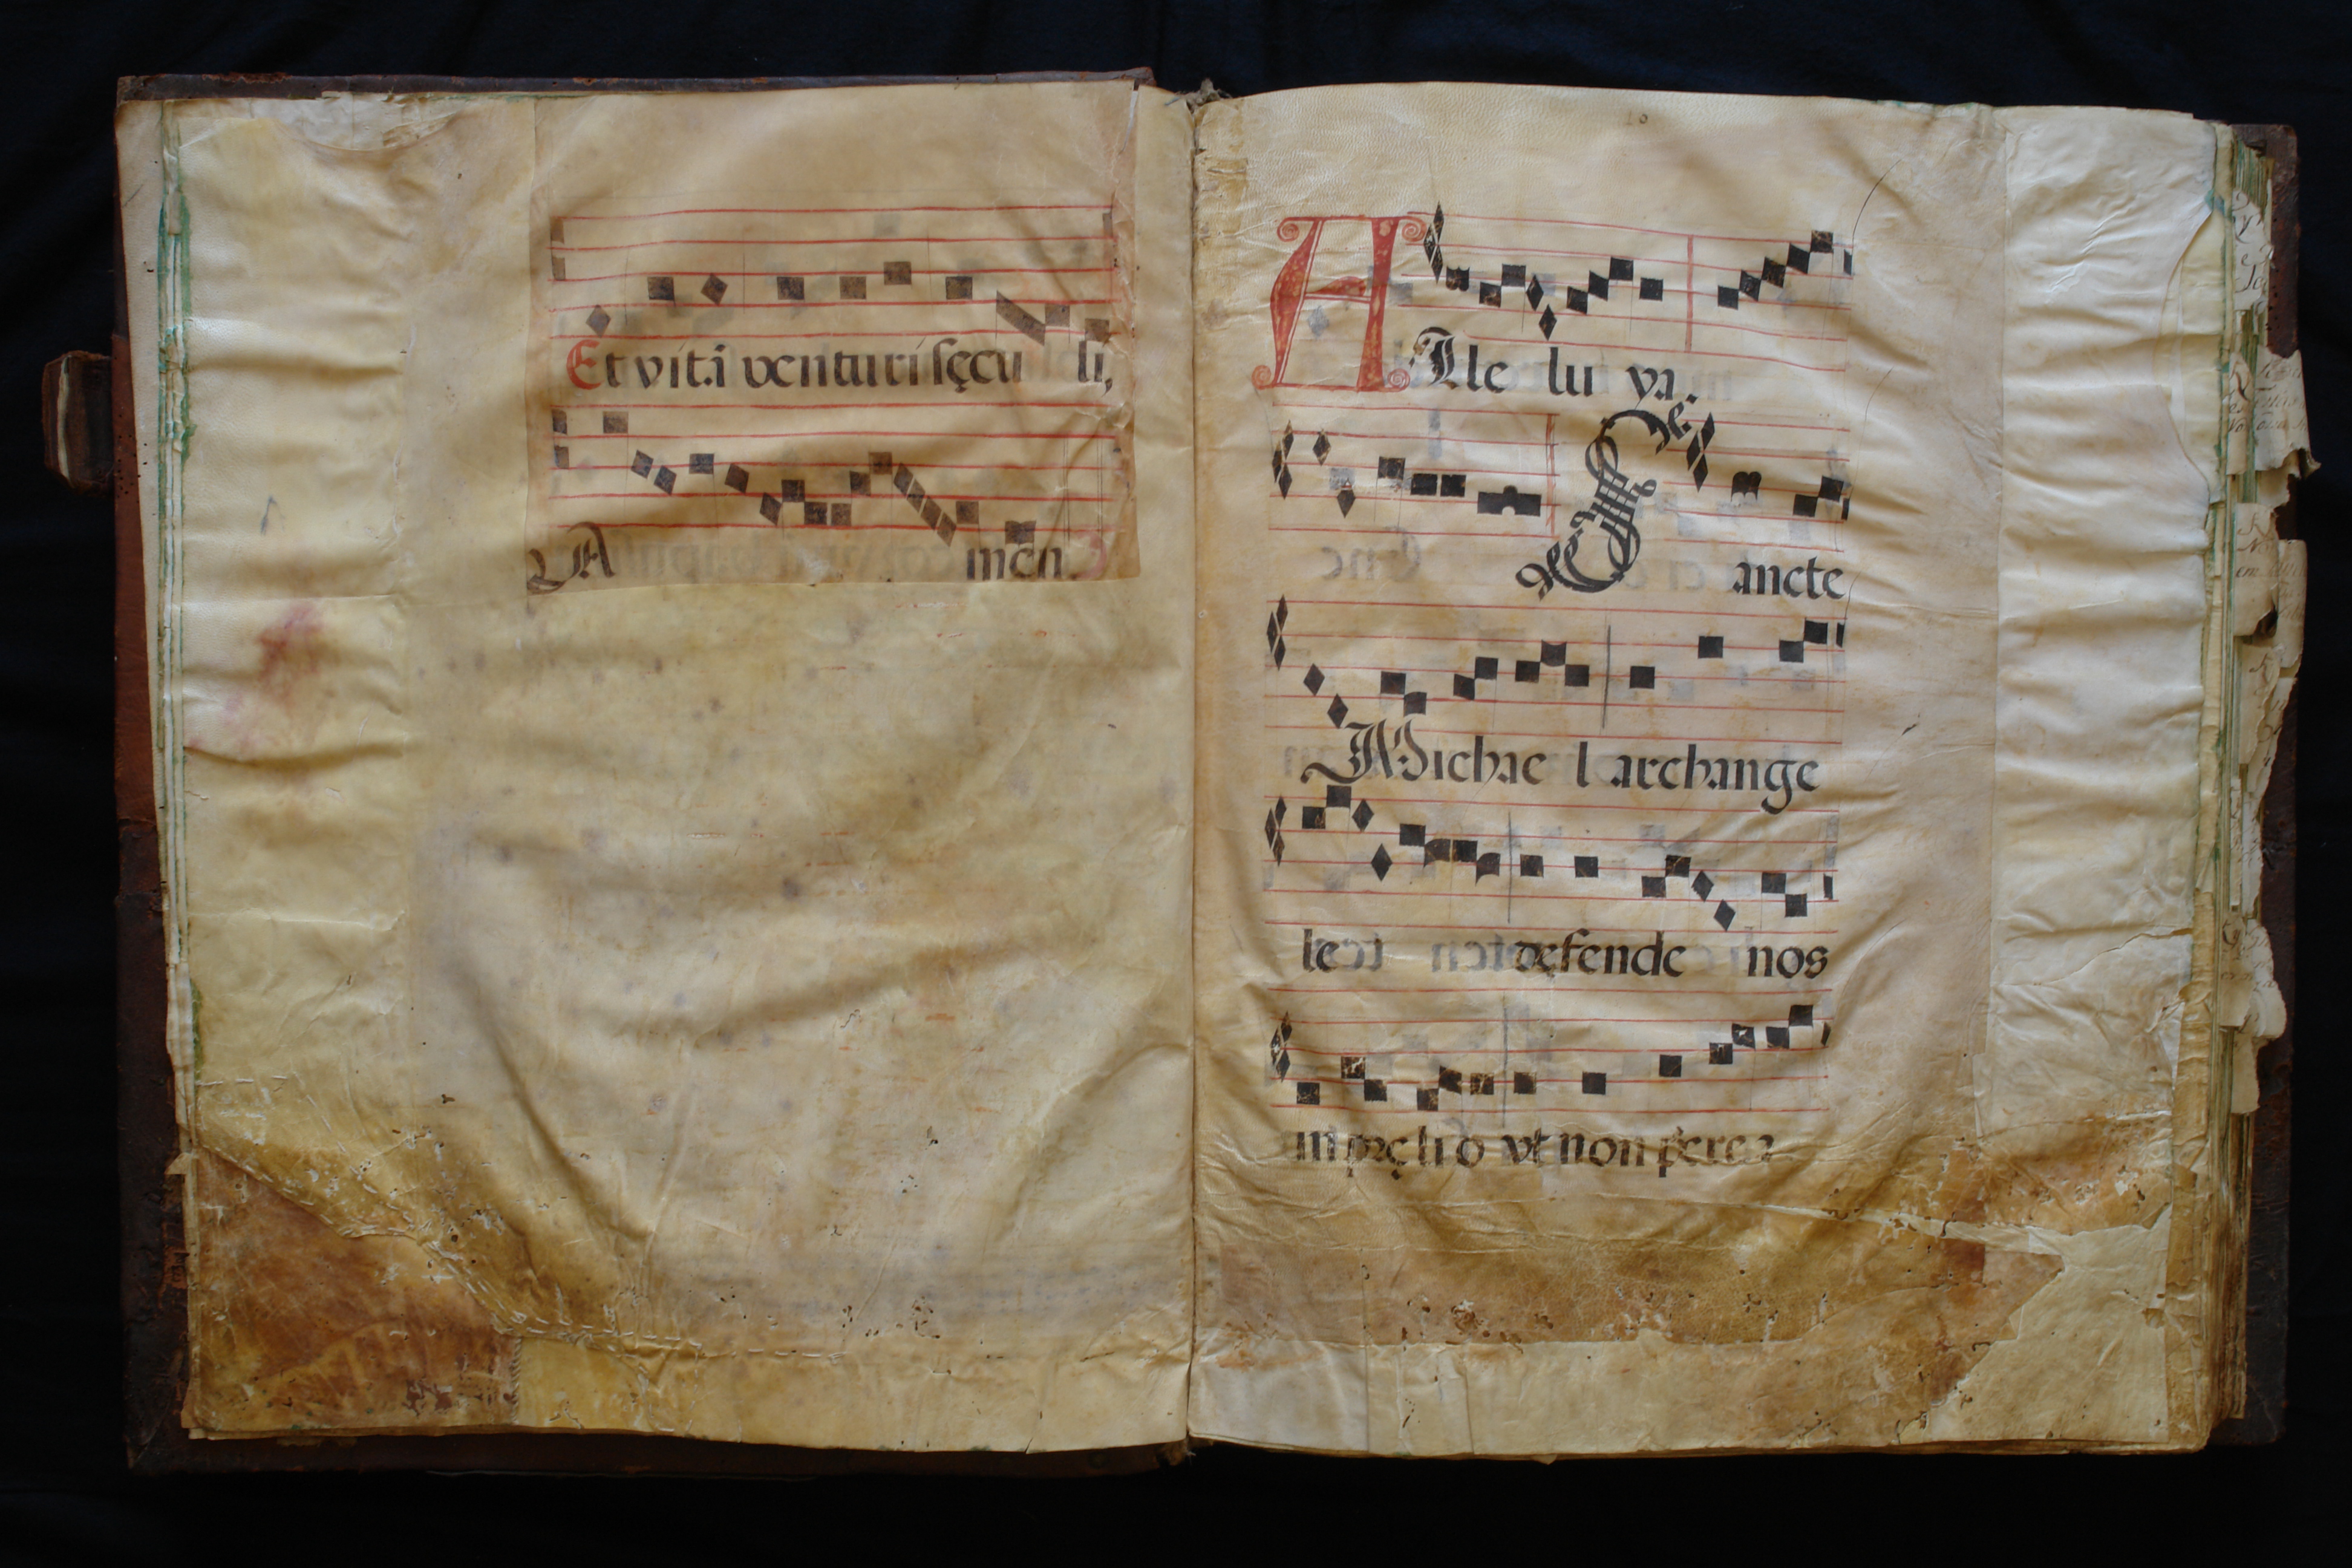 Et vitã venturi sęcu li,
Amen.
10
Alle lu ya.
Sancte
Michae l archange
le defende nos
in pręli o vt non perea